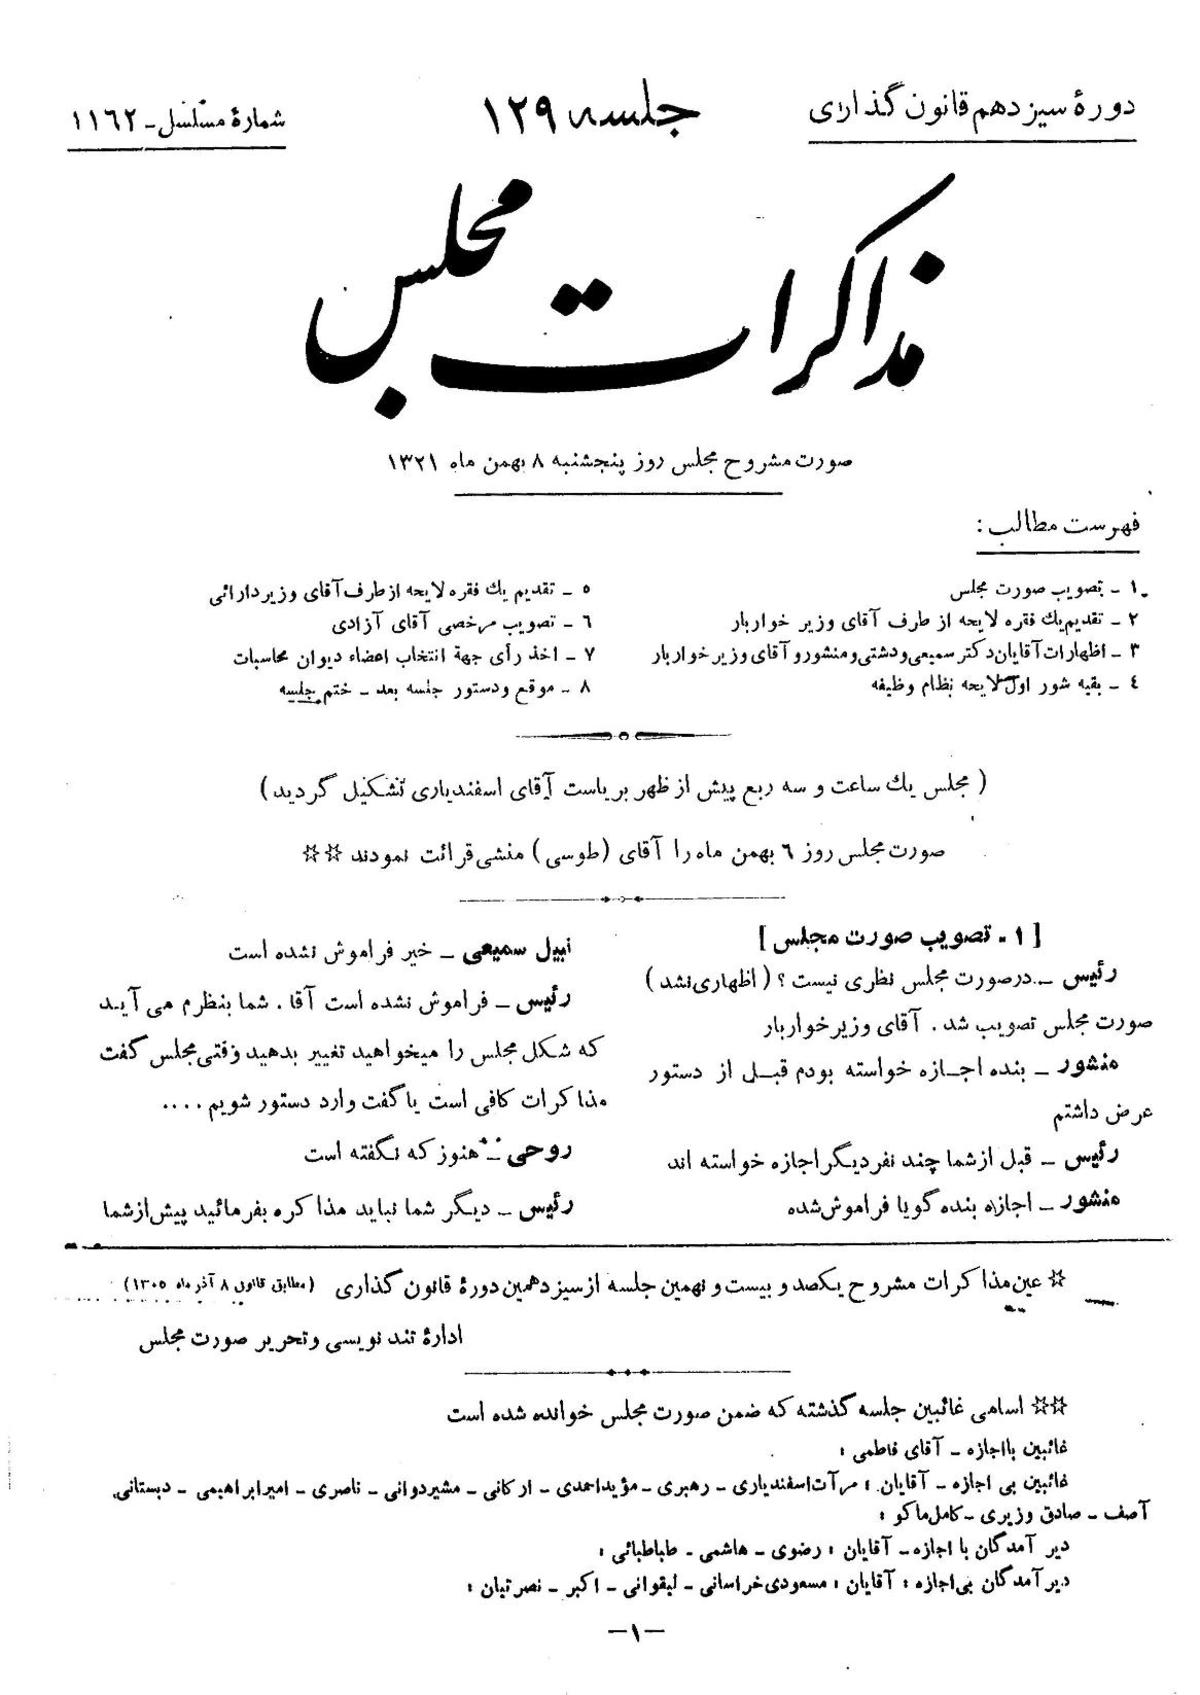 دورهٔ سیزدهم قانون گذاری
جلسه ۱۲۹
شمارهٔ مسلسل ـ ۱۱۶۲
مذاکرات مجلس
صورت مشروح مجلس روز پنجشنبه ۸ بهمن ماه ۱۳۲۱
فهرست مطالب :
۱ ـ تصویب صورت مجلس
۲ ـ تقدیم یك فقره لایحه از طرف آقای وزیر خواربار
۳ ـ اظهارات آقایان دکتر سمیعی و دشتی و منشور و آقای وزیر خواربار
٤ ـ بقیه شور اول لایحه نظام وظیفه
٥ ـ تقدیم یك فقره لایحه از طرف آقای وزیر دارائی
٦ ـ تصویب مرخصی آقای آزادی
۷ ـ اخذ رأی جهة انتخاب اعضاء دیوان محاسبات
۸ ـ موقع و دستور جلسه بعد ـ ختم جلسه
( مجلس یك ساعت و سه ربع پیش از ظهر بریاست آقای اسفندیاری تشکیل گردید )
صورت مجلس روز ٦ بهمن ماه را آقای (طوسی) منشی قرائت نمودند ☆☆
[ ۱ ـ تصویب صورت مجلس ]
رئیس ـ در صورت مجلس نظری نیست ؟ ( اظهاری نشد )
صورت مجلس تصویب شد . آقای وزیر خواربار
منشور ـ بنده اجازه خواسته بودم قبل از دستور
عرض داشتم
رئیس ـ قبل از شما چند نفر دیگر اجازه خواسته اند
منشور ـ اجازه بنده گویا فراموش شده
نبیل سمیعی ـ خیر فراموش نشده است
رئیس ـ فراموش نشده است آقا . شما بنظرم می آید
که شکل مجلس را میخواهید تغییر بدهید وقتی مجلس گفت
مذاکرات کافی است یا گفت وارد دستور شویم ....
روحی ـ هنوز که نگفته است
رئیس ـ دیگر شما نباید مذاکره بفرمائید پیش از شما
☆ عین مذاکرات مشروح یکصد و بیست و نهمین جلسه از سیزدهمین دورهٔ قانون گذاری (مطابق قانون ۸ آذر ماه ۱۳۰٥)
ادارهٔ تند نویسی و تحریر صورت مجلس
☆☆ اسامی غائبین جلسه گذشته که ضمن صورت مجلس خوانده شده است
غائبین با اجازه ـ آقای فاطمی :
غائبین بی اجازه ـ آقایان : مرآت اسفندیاری ـ رهبری ـ مؤید احمدی ـ ارکانی ـ مشیر دوانی ـ ناصری ـ امیر ابراهیمی ـ دبستانی
آصف ـ صادق وزیری ـ کامل ماکو :
دیر آمدگان با اجازه ـ آقایان : رضوی ـ هاشمی ـ طباطبائی :
دیر آمدگان بی اجازه : آقایان : مسعودی خراسانی ـ لیقوانی ـ اکبر ـ نصرتیان :
ـ۱ـ